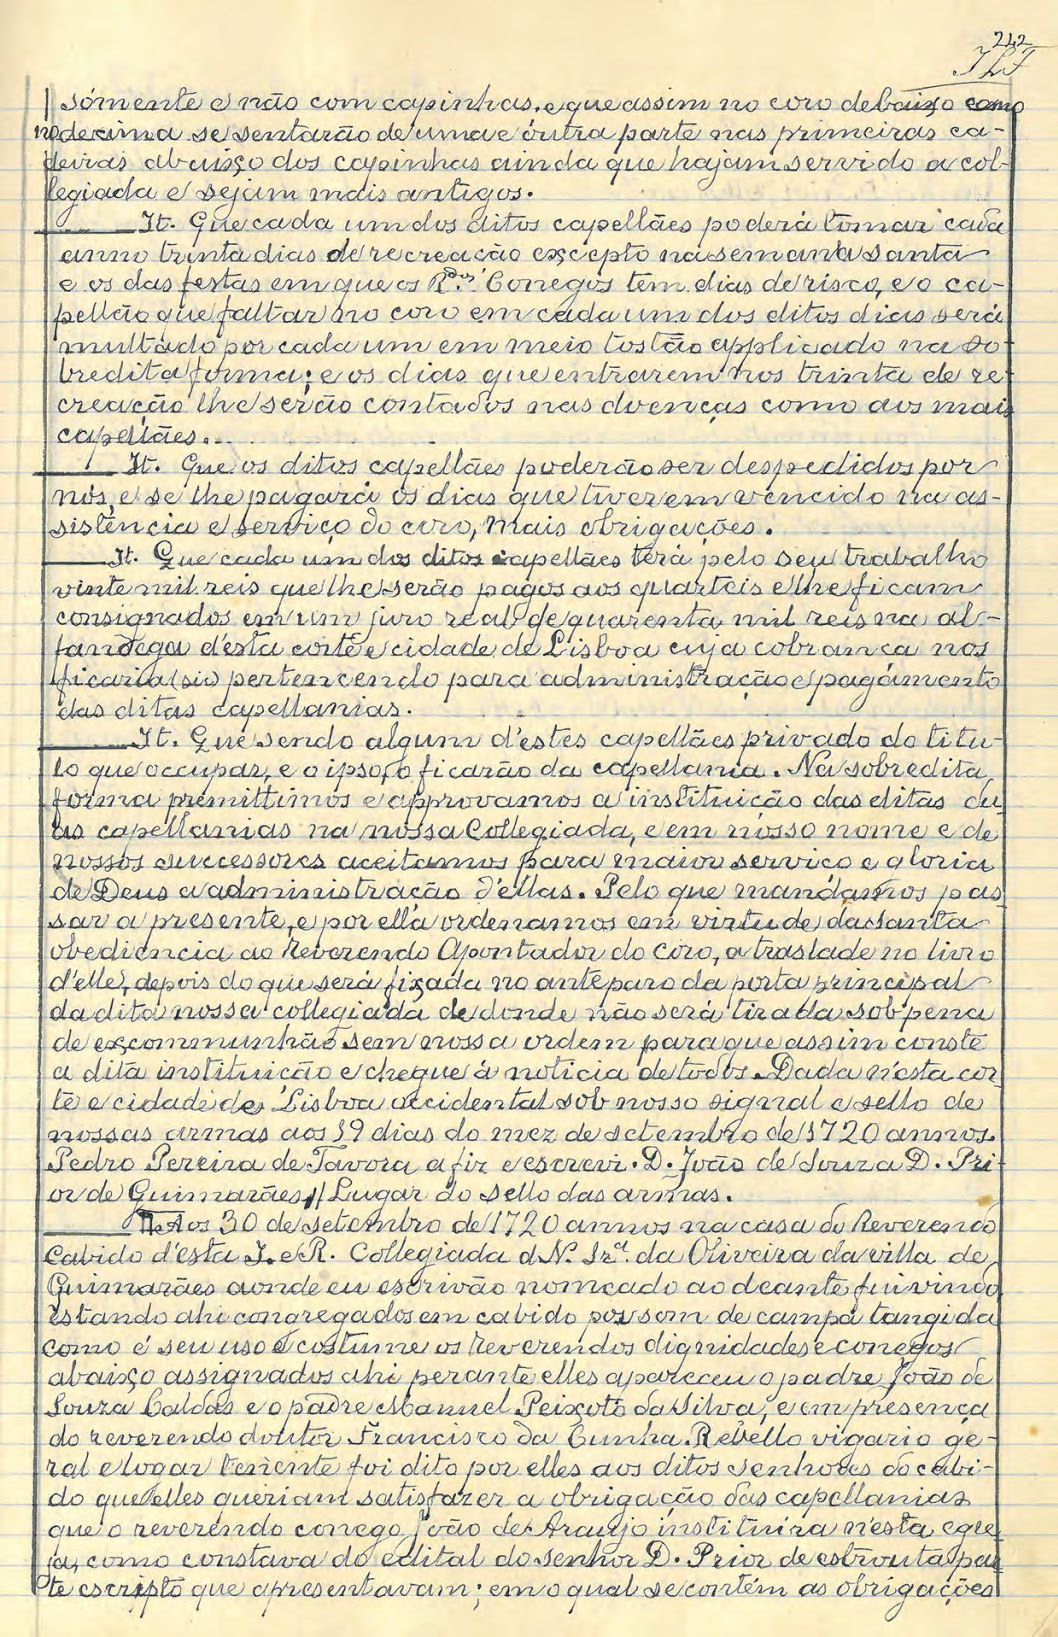 242
sómente e não com capinhas, e que assim no coro debaixo como
no decima se sentarão de uma e outra parte nas primeiras ca-
deiras abaixo dos capinhas ainda que hajam servido a col-
legiada e sejam mais antigos.
It. Que cada um dos ditos capellães poderá tomar cada
anno trinta dias de recreação excepto na semana santa
e os das festas em que os R.dos Conegos têm dias de risco, e o ca-
pellão que faltar no coro em cada um dos ditos dias será
multado por cada um em meio tostão applicado na so-
bredita forma; e os dias que entrarem nos trinta de re-
creação lhe serão contados nas doenças como aos mais
capellães.
It. Que os ditos capellães poderão ser despedidos por
nós, e se lhe pagará os dias que tiverem vencido na as-
sistência e serviço do coro, mais obrigações.
It. Que cada um dos ditos capellães terá pelo seu trabalho
vinte mil reis que lhe serão pagos aos quarteis e lhe ficam
consignados em um juro real de quarenta mil reis na al-
fandega d'esta corte e cidade de Lisboa cuja cobrança nos
ficaria (sic) pertencendo para administração e pagamento
das ditas capellanias.
It. Que sendo algum d'estes capellães privado do titu-
lo que occupar, e o ipso, o ficarão da capellania. Na sobredita
forma premittimos e approvamos a instituição das ditas du-
as capellanias na nossa Collegiada, e em nosso nome e de
nossos successores aceitamos para maior serviço e gloria
de Deus a administração d'ellas. Pelo que mandámos pas
sar a presente, e por ella ordenamos em virtude da santa
obediencia ao Reverendo Apontador do Coro, a traslade no livro
d'elle, depois do que será fixada no anteparo da porta principal
da dita nossa collegiada de donde não será tirada sob pena
de excommunhão sem nossa ordem para que assim conste
a dita instituição e chegue á noticia de todos. Dada n'esta cor
te e cidade de Lisboa occidental sob nosso signal e sello de
nossas armas aos 19 dias do mez de setembro de 1720 annos.
Pedro Pereira de Tavora a fiz e escrevi. D. João de Souza D. Pri
or de Guimarães // Lugar do sello das armas.
Aos 30 de setembro de 1720 annos na casa do Reverendo
Cabido d'esta I. e R. Collegiada d N. Sr.ª da Oliveira da villa de
Guimarães aonde eu escrivão nomeado ao deante fui vindo
estando ahi congregados em cabido por som de campa tangida
como é seu uso e costume os Reverendos dignidades e conegos
abaixo assignados ahi perante elles apareceu o padre João de
Souza Caldas e o padre Manuel Peixoto da Silva, e em presença
do reverendo doutor Francisco da Cunha Rebello vigario ge-
ral e logar tenente foi dito por elles aos ditos senhores do cabi-
do que elles queriam satisfazer a obrigação das capellanias
que o reverendo conego João de Araujo instituira n'esta egre
ja, como constava do edital do senhor D. Prior de estroutra par
te escripto que apresentavam; em o qual se contém as obrigações